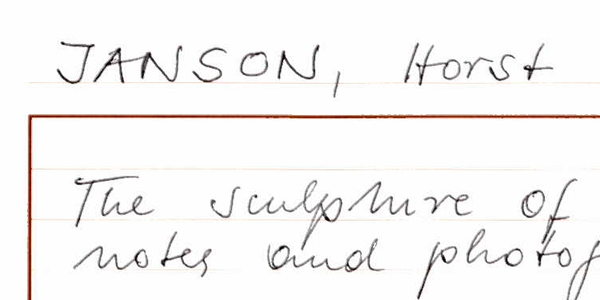 JANSON, Horst
The sculpture of
notes and photog